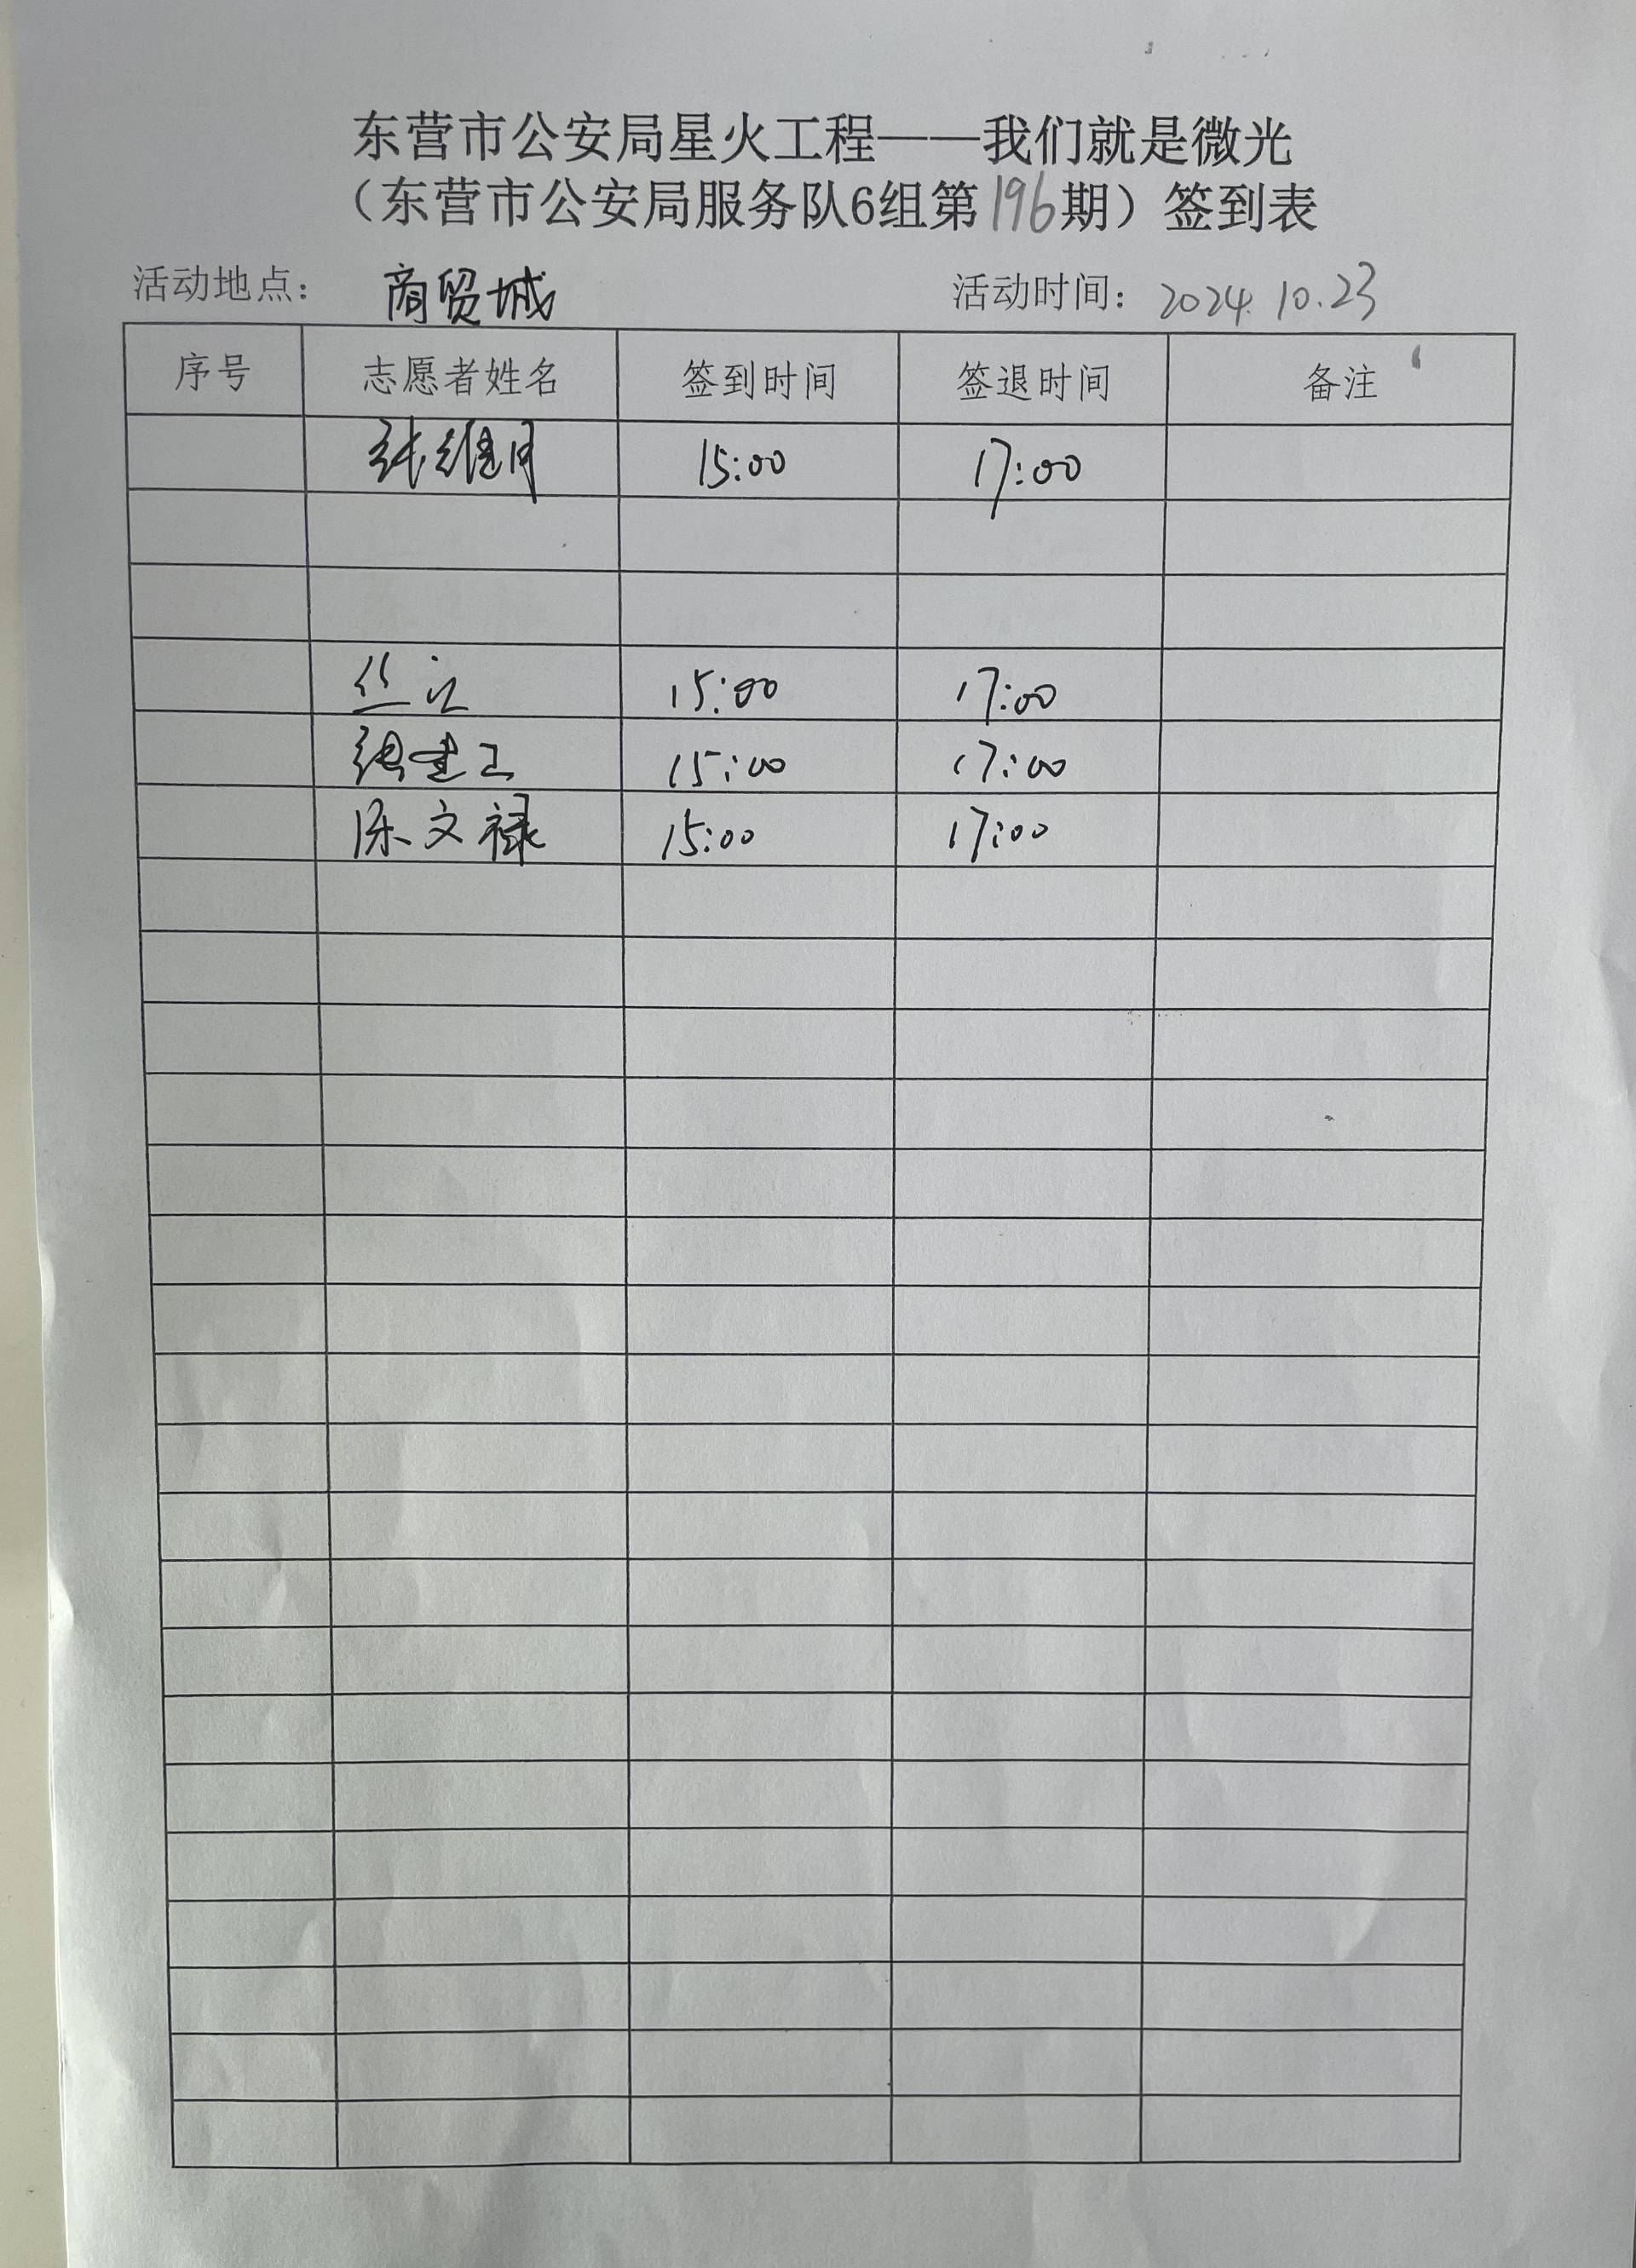 东营市公安局星火工程——我们就是微光
（东营市公安局服务队6组第196期）签到表
活动地点： 商贸城 活动时间：2024.10.23
序号 志愿者姓名 签到时间 签退时间 备注
15:00 17:00
15:00 17:00
15:00 17:00
陈文禄 15:00 17:00